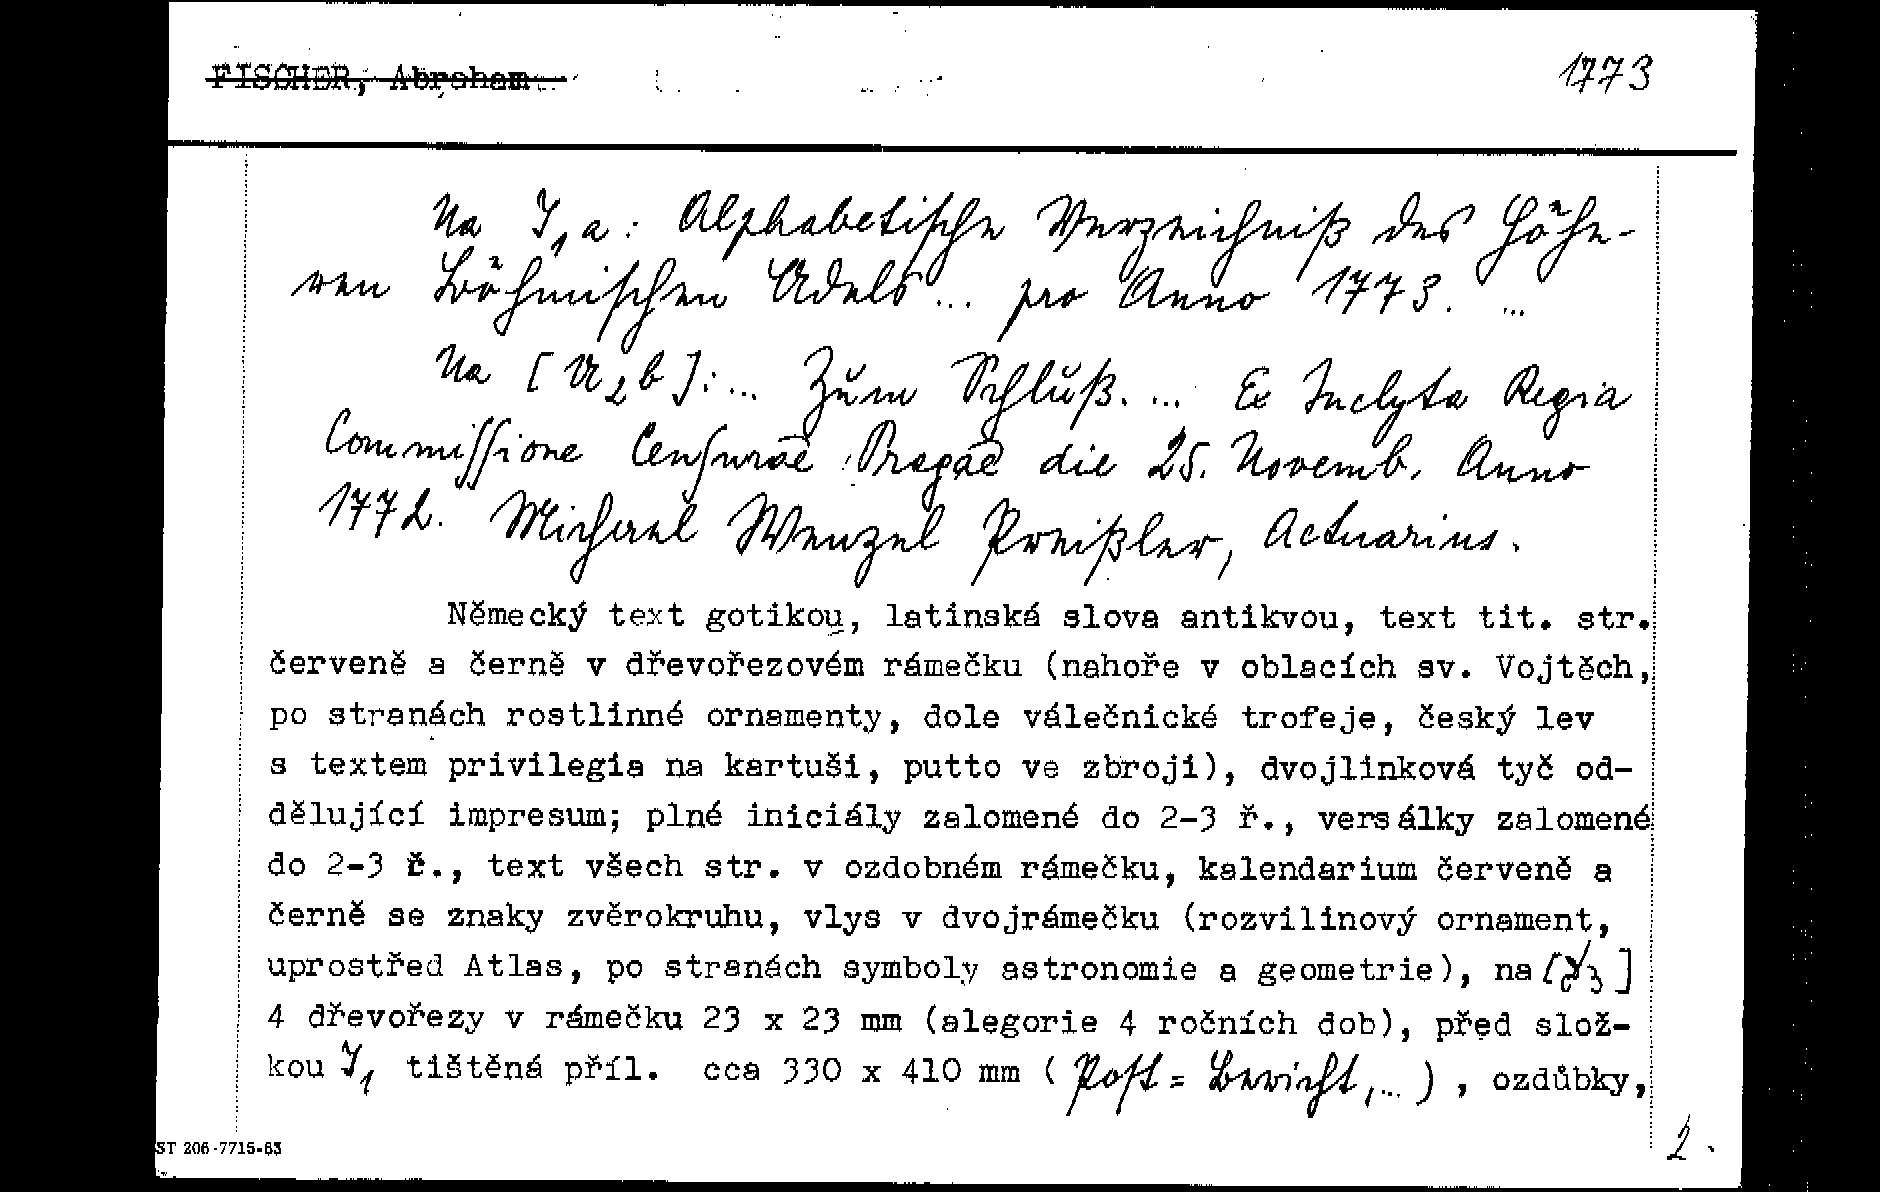 FISCHER, Abraham
1773
Na J₁a: Alphabetische Verzeichniß des Höhe-
ren Böhmischen Adels... pro Anno 1773. ...
Na [A₂b]:... Zum Schluß. ... Ex Inclyta Regia
Commissione Censurae Pragae die 25. Novemb. Anno
1772. Michael Wenzel Preißler, Actuarius.
Německý text gotikou, latinská slova antikvou, text tit. str.
červeně a černě v dřevořezovém rámečku (nahoře v oblacích sv. Vojtěch,
po stranách rostlinné ornamenty, dole válečnické trofeje, český lev
s textem privilegia na kartuši, putto ve zbroji), dvojlinková tyč od-
dělující impresum; plné iniciály zalomené do 2-3 ř., versálky zalomené
do 2-3 ř., text všech str. v ozdobném rámečku, kalendarium červeně a
černě se znaky zvěrokruhu, vlys v dvojrámečku (rozvilinový ornament,
uprostřed Atlas, po stranách symboly astronomie a geometrie), na
4 dřevořezy v rámečku 23 x 23 mm (alegorie 4 ročních dob), před slož-
kou J₁ tištěná příl. cca 330 x 410 mm (Post=Bericht,...), ozdůbky,
ST 206-7715-63
2.